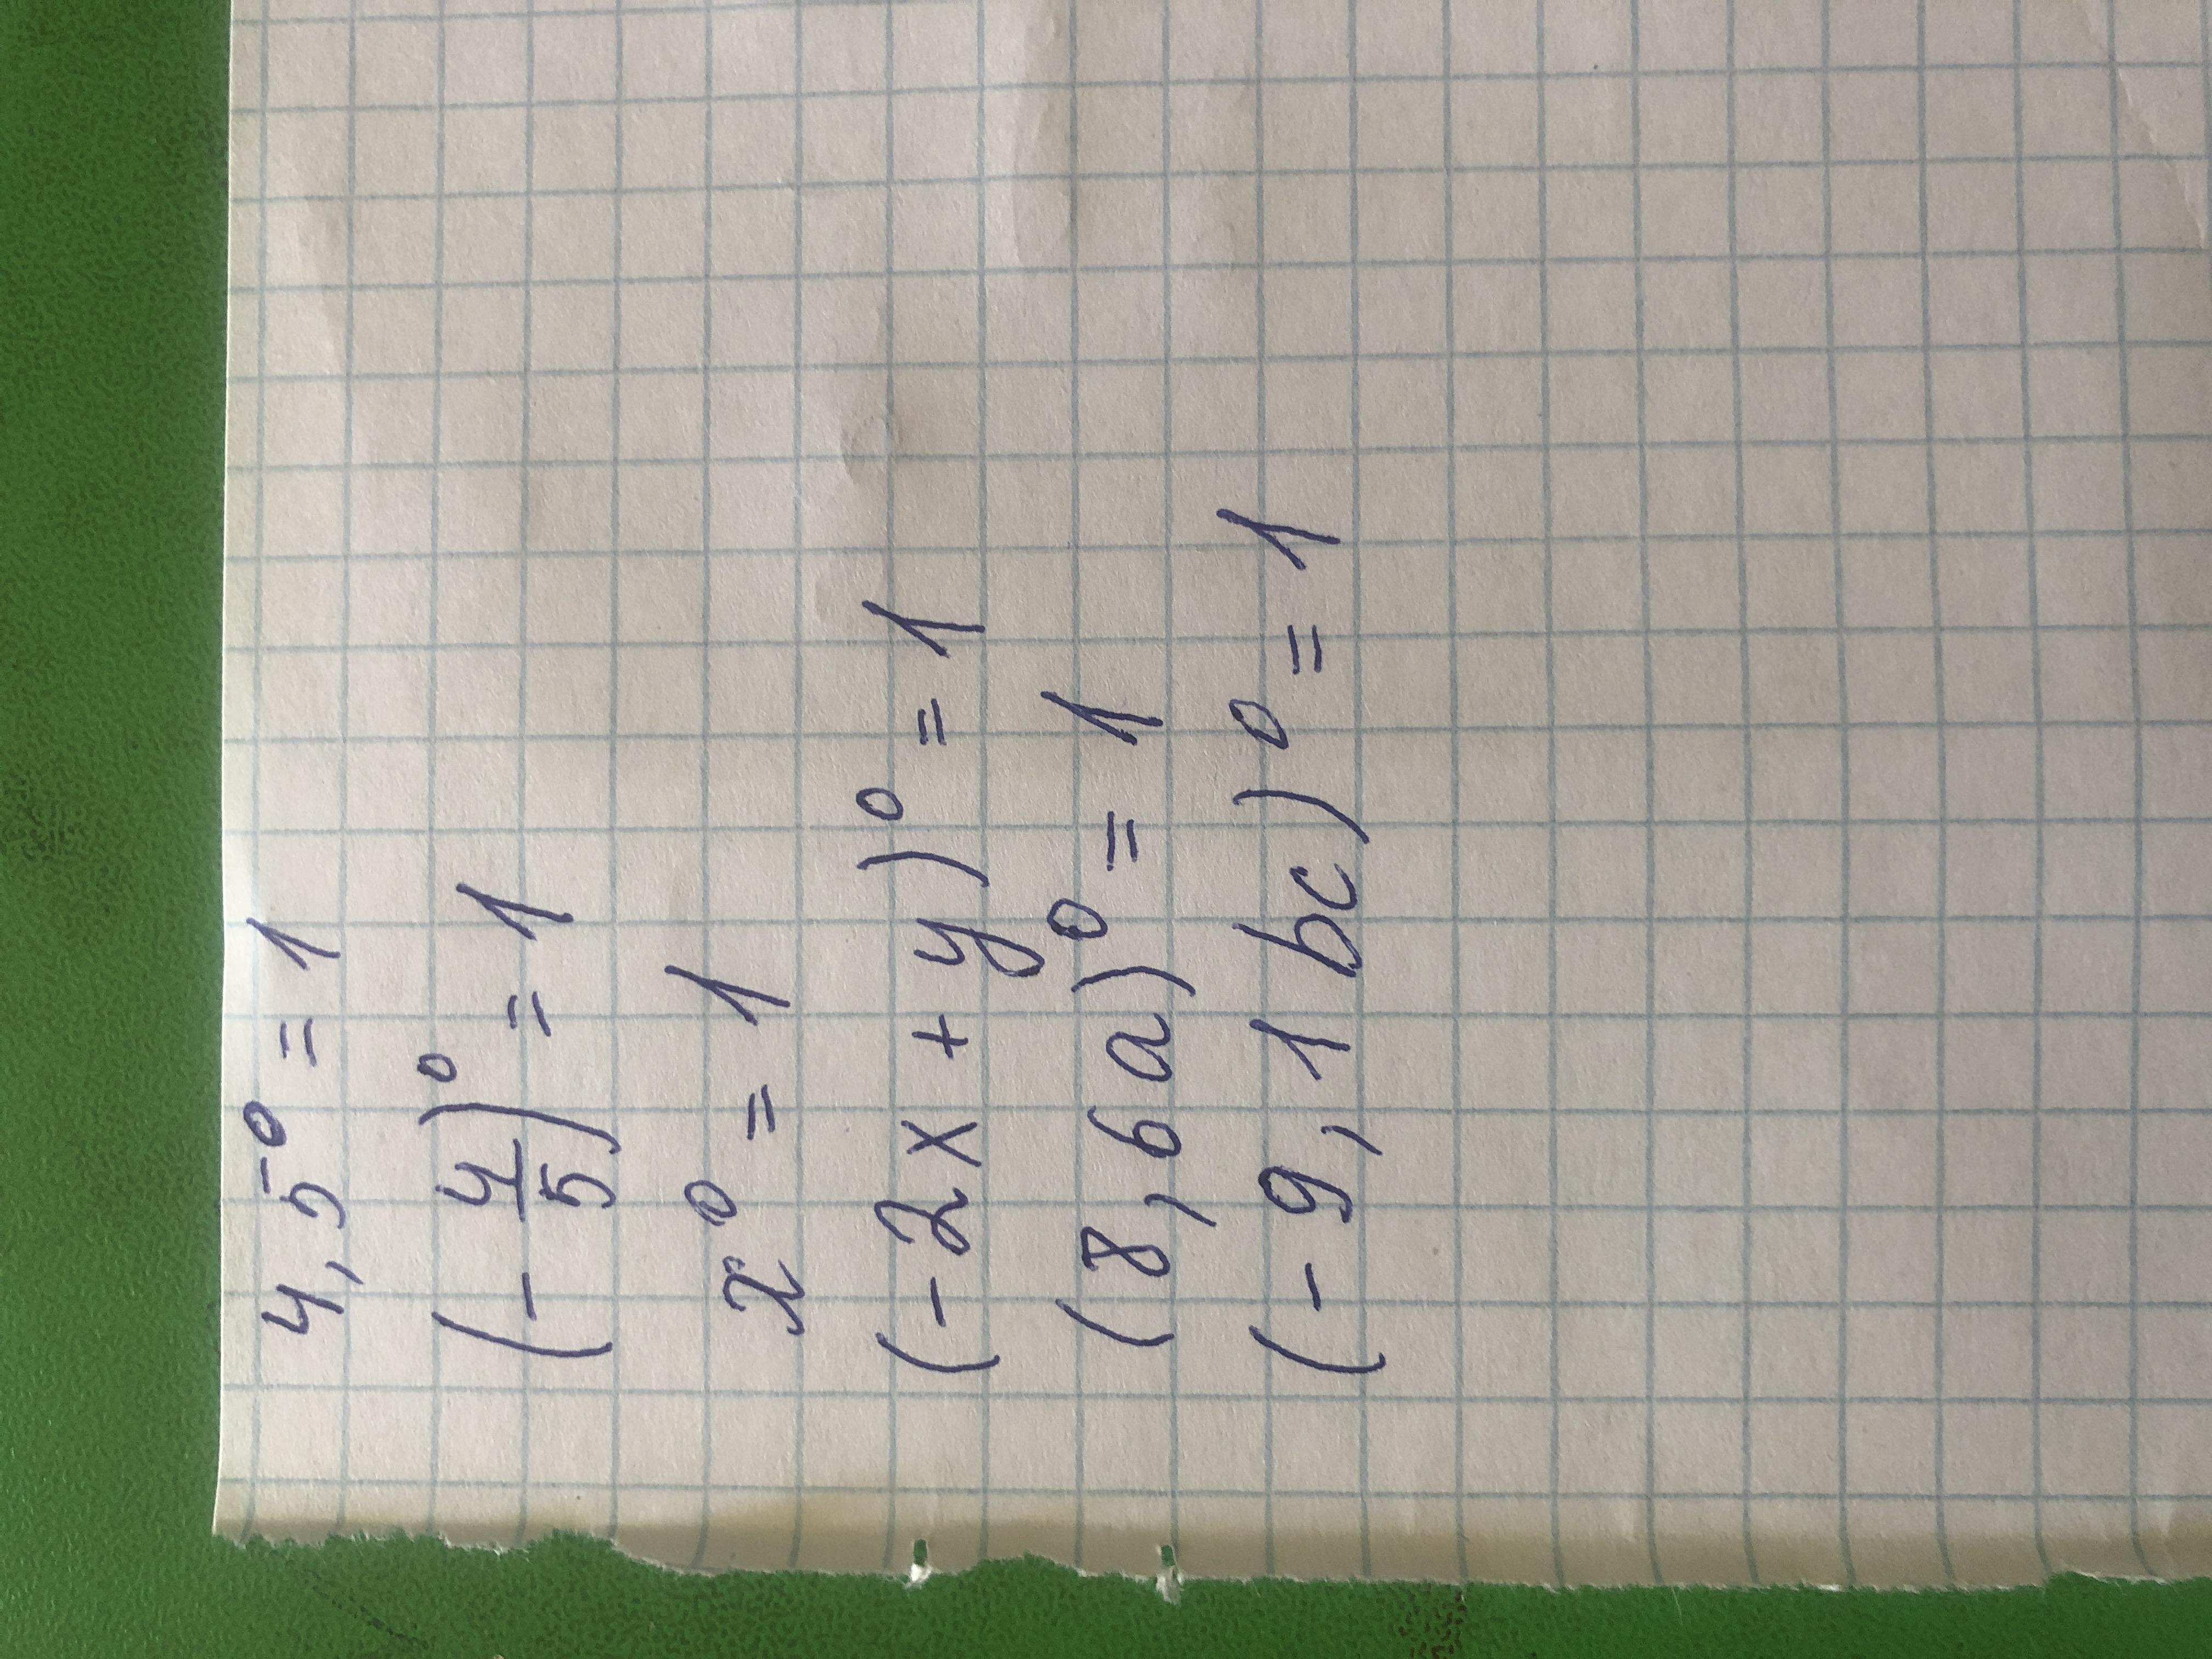 4,5⁰ = 1
(-4/5)⁰ = 1
x⁰ = 1
(-2x + y)⁰ = 1
(8,6a)⁰ = 1
(-9,1bc)⁰ = 1